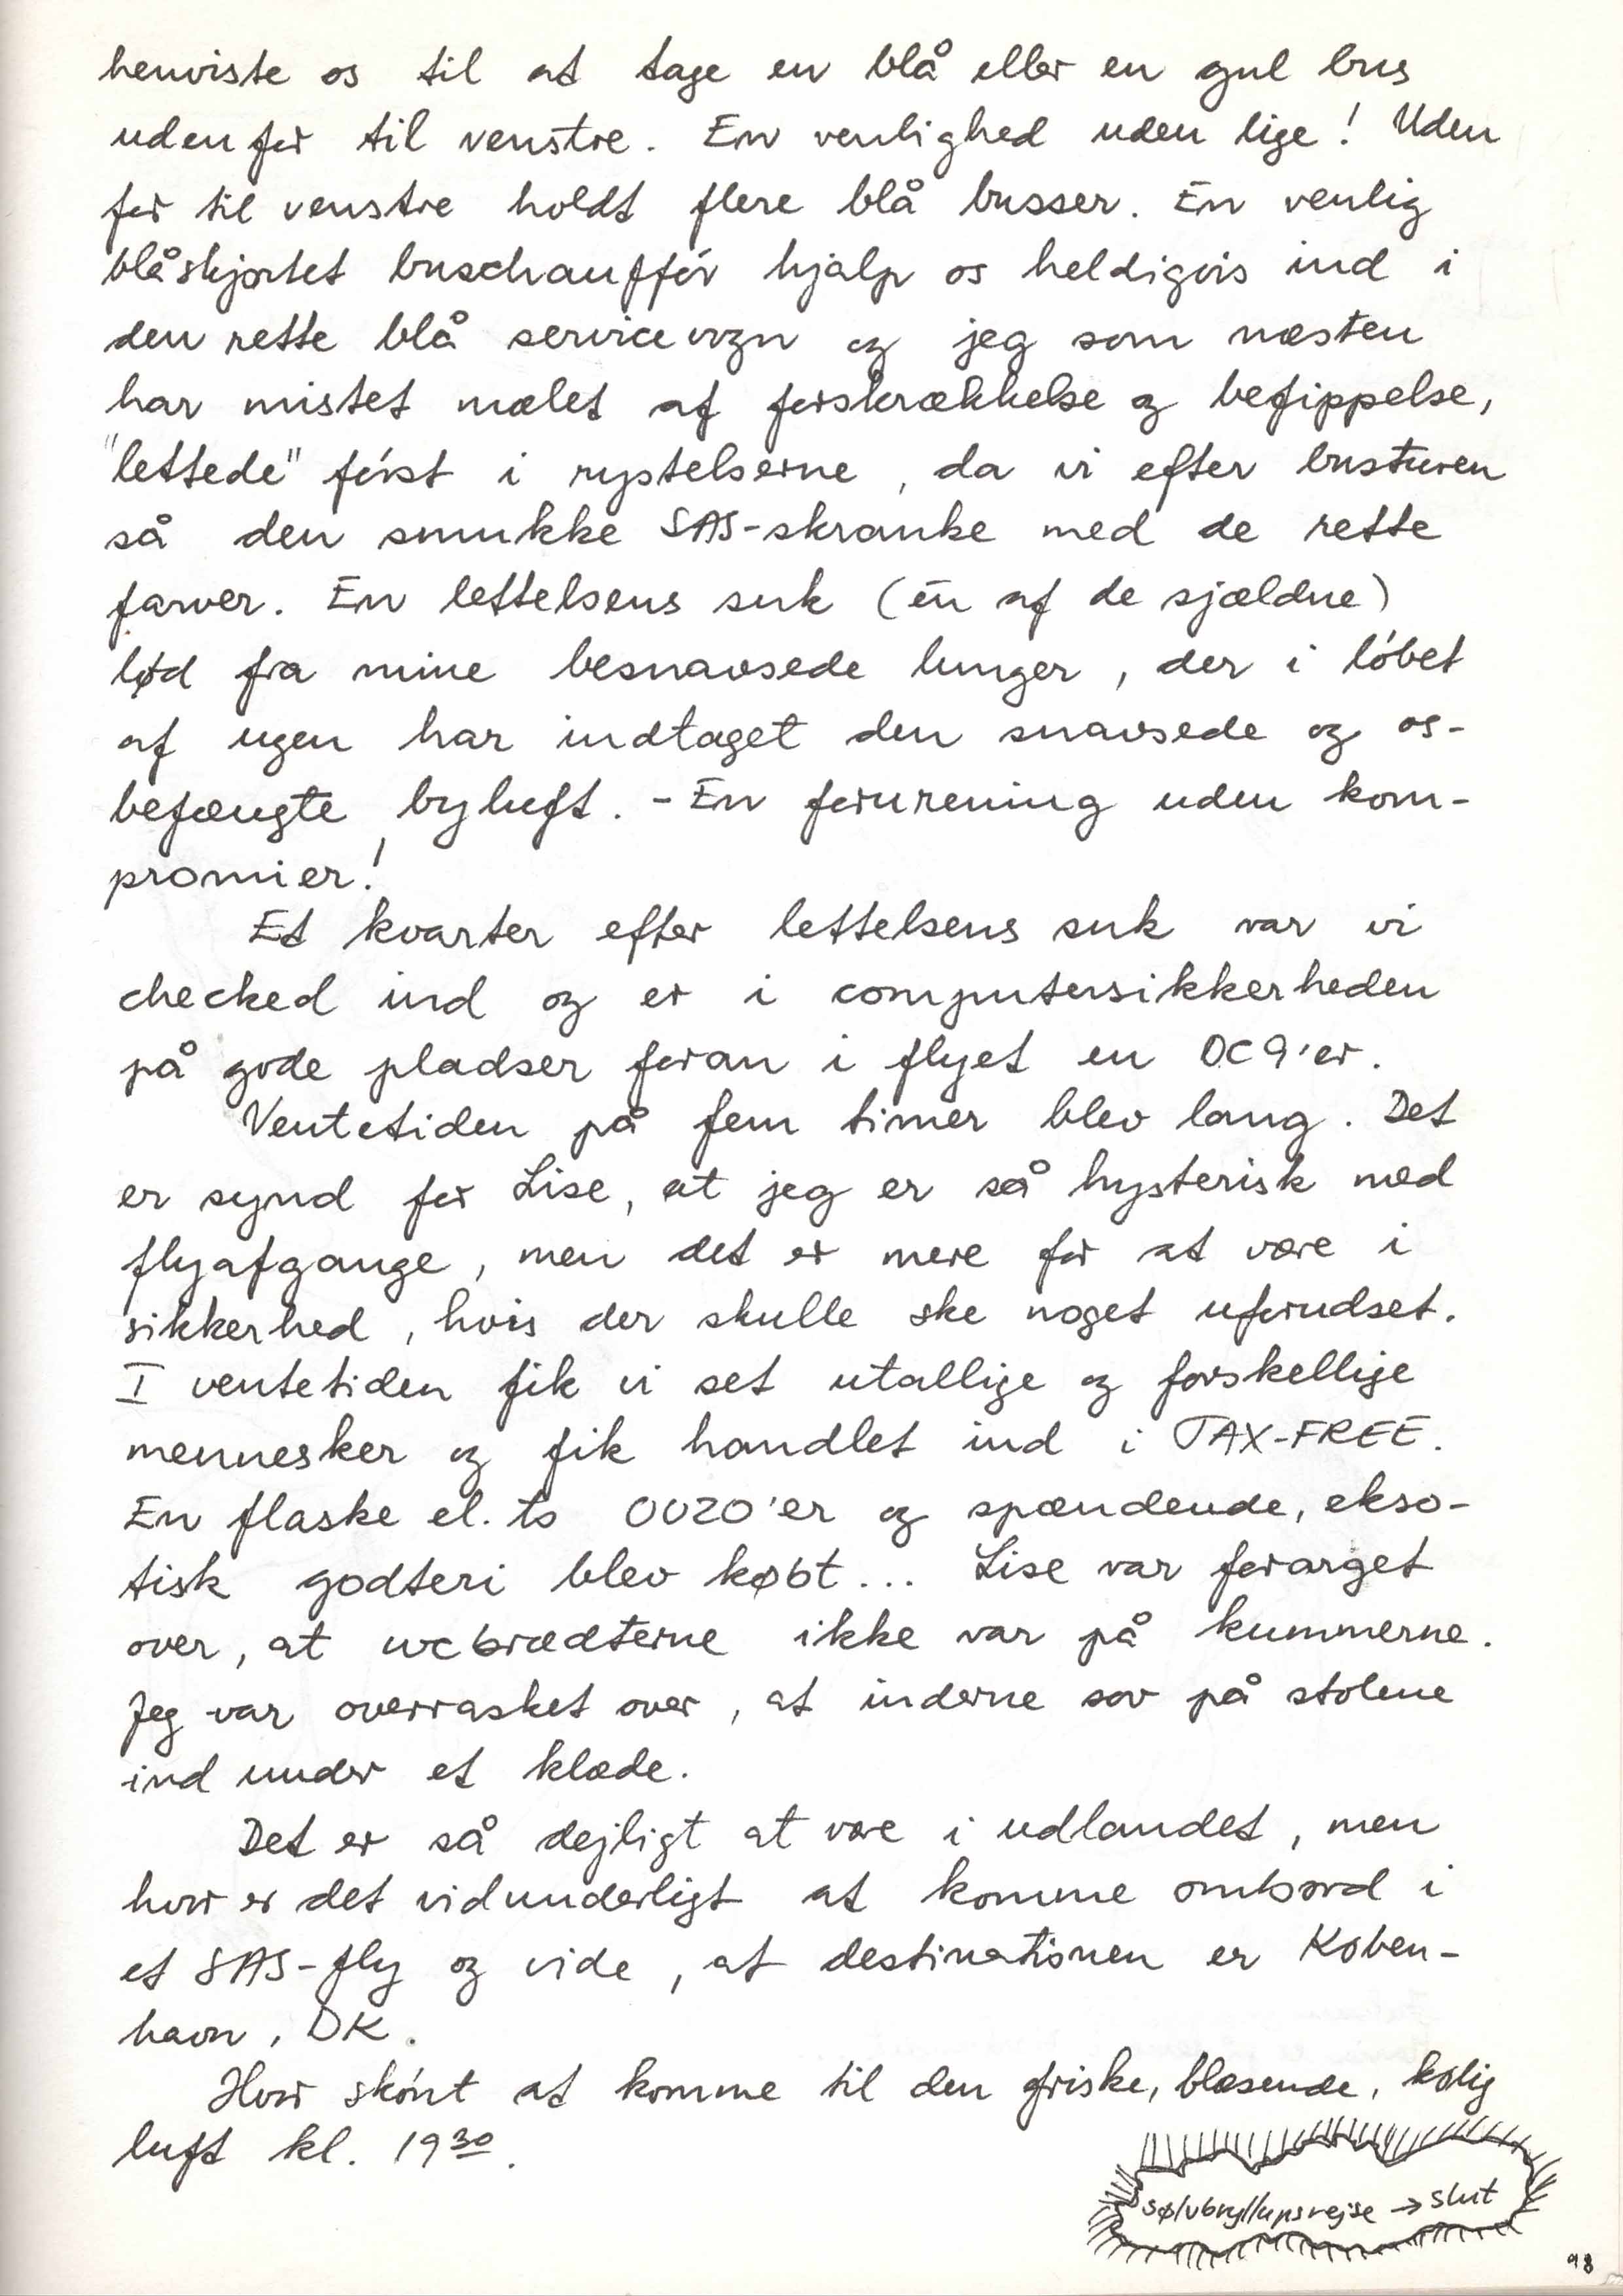 henviste os til at tage en blå eller en gul bus
udenfor til venstre. En venlighed uden lige! Uden
for til venstre holdt flere blå busser. En venlig
blåskjortet buschauffór hjalp os heldigvis ind i
den rette blå servicevogn og jeg som næsten
har mistet mælet af forskrækkelse og befippelse,
"lettede" fórst i rystelserne, da vi efter busturen
så den smukke SAS-skranke med de rette
farver. En lettelsens suk (én af de sjældne)
lød fra mine besnavsede lunger, der i lóbet
af ugen har indtaget den snavsede og os-
befængte byluft. - En forurening uden kom-
promier!
Et kvarter efter lettelsens suk var vi
checked ind og er i computersikkerheden
på gode pladser foran i flyet en DC9'er.
Ventetiden på fem timer blev lang. Det
er synd for Lise, at jeg er så hysterisk med
flyafgange, men det er mere for at være i
sikkerhed, hvis der skulle ske noget uforudset.
I ventetiden fik vi set utallige og forskellige
mennesker og fik handlet ind i TAX-FREE.
En flaske el. to OUZO'er og spændende, ekso-
tisk godteri blev købt... Lise var forarget
over, at wcbrædterne ikke var på kummerne.
Jeg var overrasket over, at inderne sov på stolene
ind under et klæde.
Det er så dejligt at være i udlandet, men
hvor er det vidunderligt at komme ombord i
et SAS-fly og vide, at destinationen er Koben-
havn, DK.
Hvor skónt at komme til den friske, blæsende, kølig
luft kl. 19 30.
Sølvbryllupsrejse → slut
98